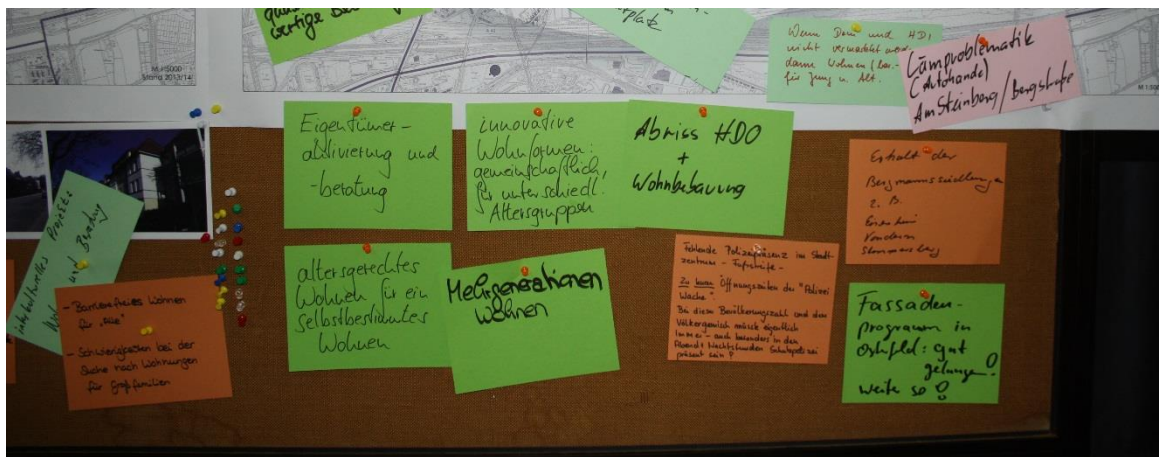 wertige
platz
M 1:5000
Stand 2013/14
Wenn Dom und HDI
nicht vermarktet
dann Wohnen
für Jung u. Alt.
Lärmproblematik
(Autohande)
Am Steinberg/Bergstraße
Eigentümer-
aktivierung und
-beratung
innovative
Wohnformen:
gemeinschaftlich,
für unterschiedl.
Altersgruppen
Abriss HDO
+
Wohnbebauung
Erhalt der
Bergmannssiedlungen
z. B.
Eisenheim
Vondern
Stemmersberg
interkulturelles Projekt:
und Beratung
- Barrierefreies Wohnen
für "Alle"
- Schwierigkeiten bei der
Suche nach Wohnungen
für Großfamilien
altersgerechtes
Wohnen für ein
selbstbestimmtes
Wohnen
Mehrgenerationen
wohnen
Fehlende Polizeipräsenz im Stadt-
zentrum - Fußstreife -
zu kurze Öffnungszeiten der "Polizei
Wache".
Bei dieser Bevölkerungszahl und dem
Völkergemisch müsste eigentlich
immer - auch besonders in den
Abend + Nachtstunden Schutzpolizei
präsent sein!
Fassaden-
programm in
Osterfeld: gut
gelungen!
weiter so!